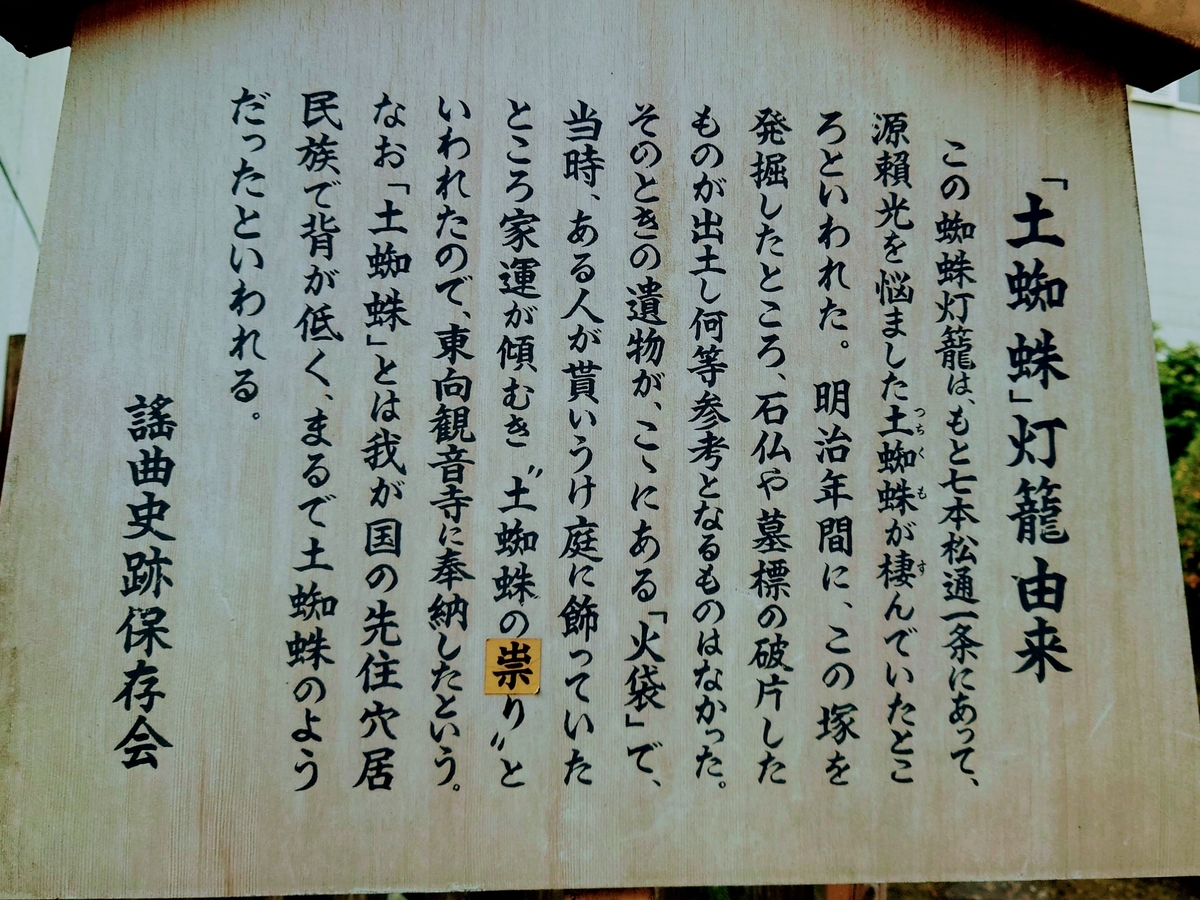 「土蜘蛛」灯籠由来
この蜘蛛灯籠は、もと七本松通一条にあって、
源頼光を悩ました土蜘蛛が棲んでいたとこ
ろといわれた。明治年間に、この塚を
発掘したところ、石仏や墓標の破片した
ものが出土し何等参考となるものはなかった。
そのときの遺物が、こゝにある「火袋」で、
当時、ある人が貰いうけ庭に飾っていた
ところ家運が傾むき〝土蜘蛛の祟り〟と
いわれたので、東向観音寺に奉納したという。
なお「土蜘蛛」とは我が国の先住穴居
民族で背が低く、まるで土蜘蛛のよう
だったといわれる。
謡曲史跡保存会